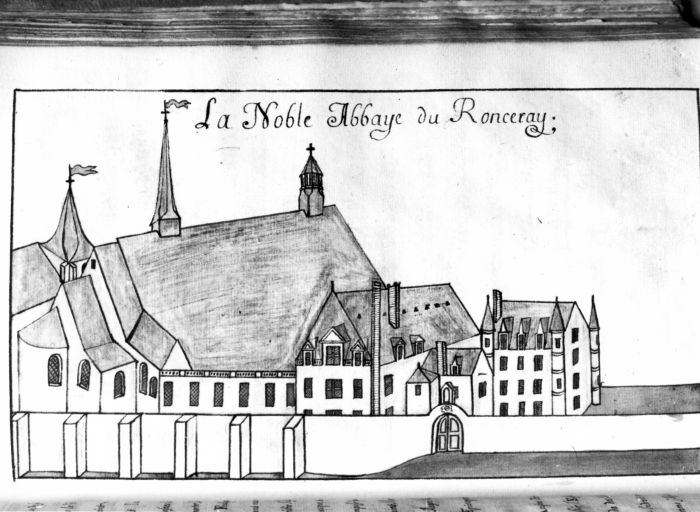 La Noble Abbaye du Ronceray;